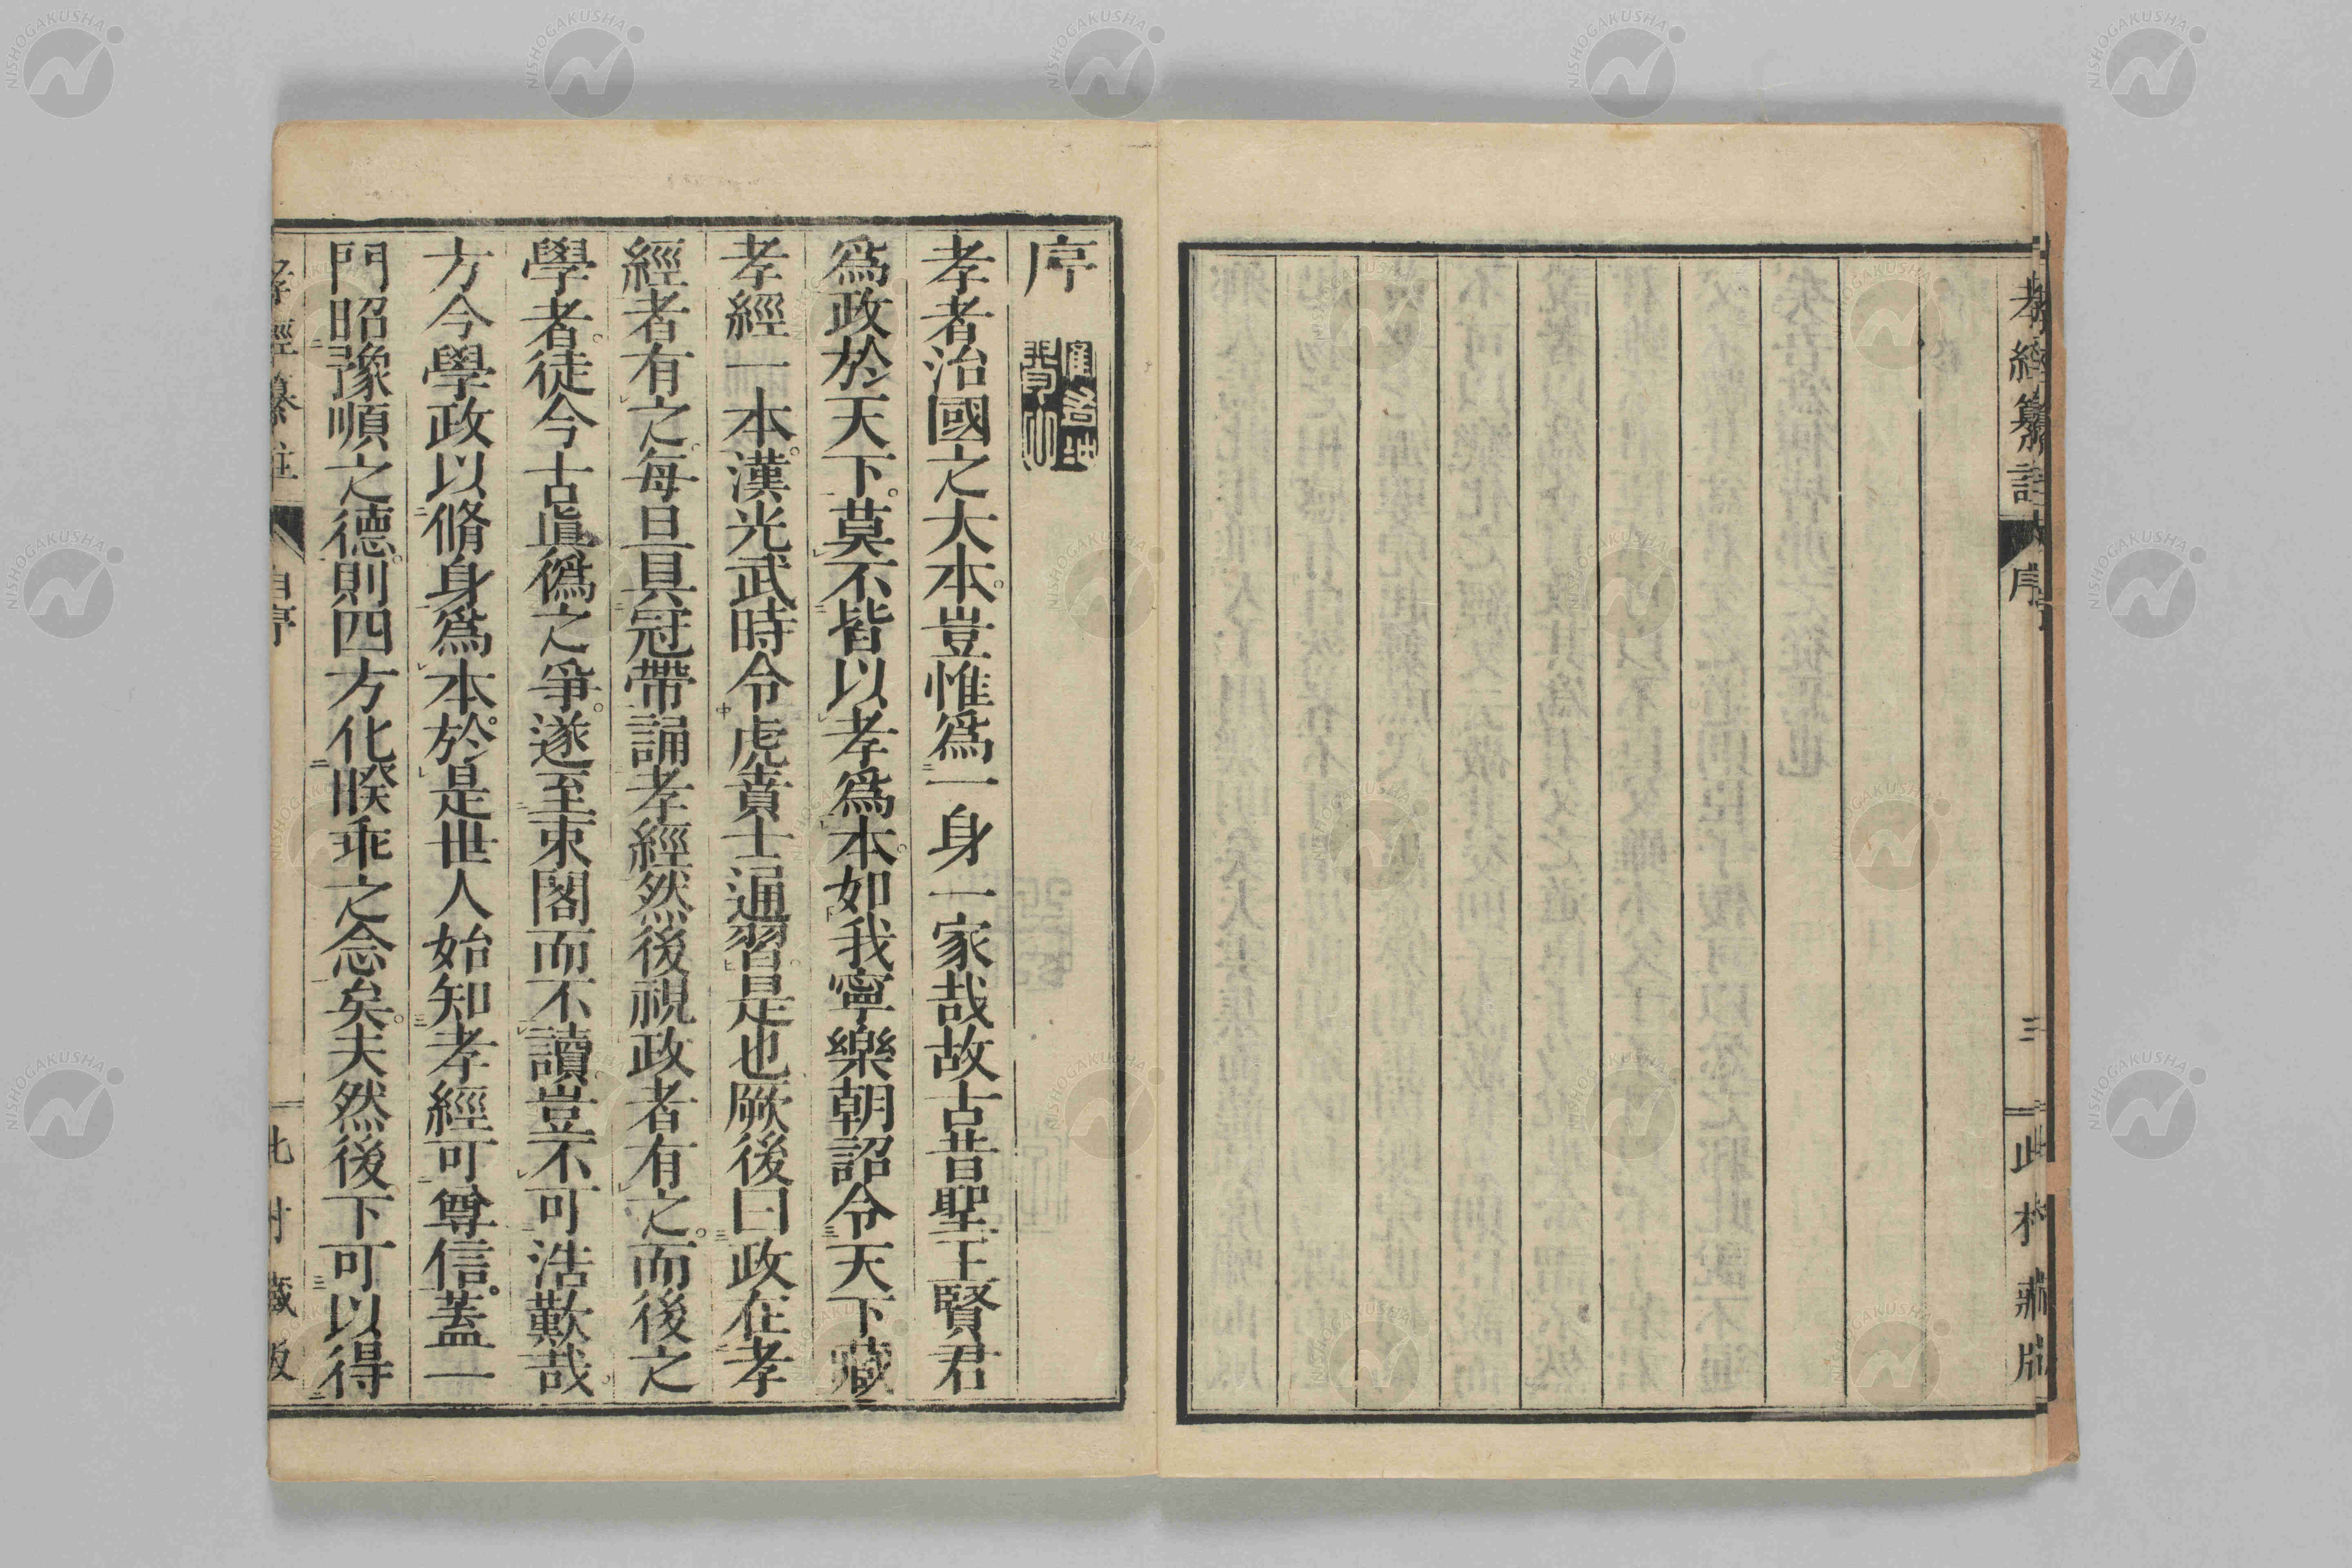 孝經纂註 序 三 此村藏版
序
孝者治國之大本。豈惟爲一身一家哉故古昔聖王賢君
爲政於天下。莫不皆以孝爲本。如我寧樂朝詔令天下藏
孝經一本。漢光武時令虎賁士通習是也厥後曰政在孝
經者有之。每旦具冠帶誦孝經然後視政者有之。而後之
學者。徒今古眞僞之爭。遂至束閣而不讀。豈不可浩歎哉。
方今學政以脩身爲本。於是世人始知孝經可尊信。蓋一
門昭豫順之德。則四方化睽乖之念矣。夫然後下可以得
孝經纂註 自序 此村藏版
NISHOGAKUSHA